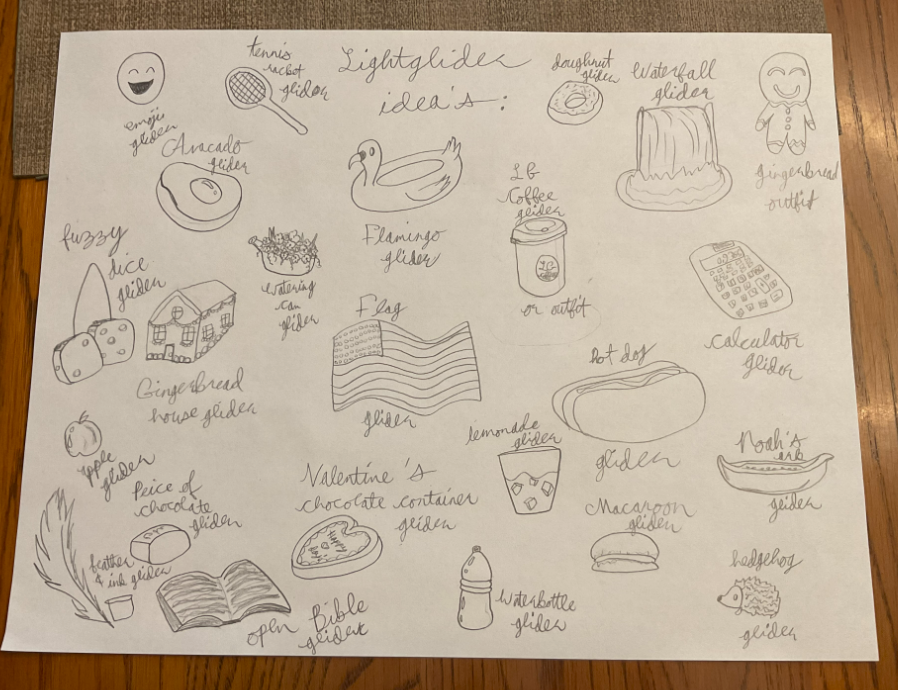 Lightglider
idea's:
emoji
glider
tennis
racket
glider
doughnut
glider
Waterfall
glider
gingerbread
outfit
Avacado
glider
Flamingo
glider
LG
Coffee
glider
LG
or outfit
fuzzy
dice
glider
watering
can
glider
Gingerbread
house glider
Flag
glider
calculator
glider
Hot dog
glider
apple
glider
lemonade
glider
Noah's
ark
glider
Peice of
chocolate
glider
Valentine's
chocolate container
glider
Macaroon
glider
feather
& ink glider
open Bible
glider
waterbottle
glider
hedgehog
glider